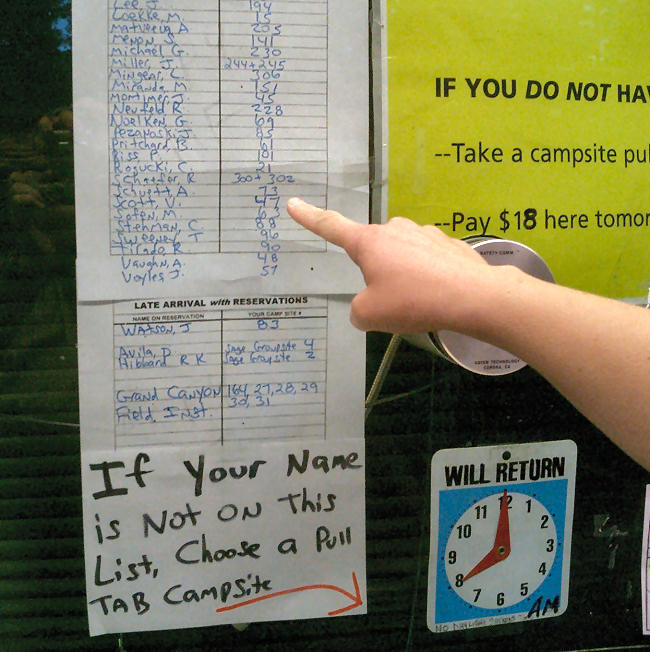 Lee J. 194
Loekke, M. 15
Matveeva A 205
Menon, S. 141
Michael G. 230
Miller, J 244+245
Mingear, L. 306
Miranda M 151
Mortimer J. 45
Neufeld R. 228
Noelken, G. 69
Pezanoski J. 85
Pritchard, B. 61
Riss, P. 101
Rogucki, C. 21
Schaefer, R 300+302
Schuett, A. 73
Scott, V. 47
Soten, M. 63
Stehman, C 88
Sweeney, T 96
Tirado, R 90
Vaughn, A. 48
Voyles J. 57
LATE ARRIVAL with RESERVATIONS
NAME ON RESERVATION YOUR CAMP SITE #
Watson, J 83
Avila, D Sage Groupsite 4
Hibbard R K Sage Groupsite 2
Grand Canyon 164, 27, 28, 29
Field Inst. 30, 31
If Your Name
is Not ON This
List, Choose a Pull
TAB Campsite
IF YOU DO NOT HAV
--Take a campsite pul
--Pay $18 here tomor
SAFETY COMM
ASTEM TECHNOLOGY
CORONA, CA
WILL RETURN
12 1 2 3 4 5 6 7 8 9 10 11
AM